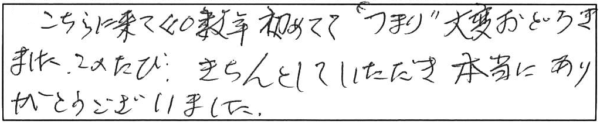 こちらに来て40数年初めてで"つまり"大変おどろき
ました。このたび、きちんとしていただき本当にあり
がとうございました。